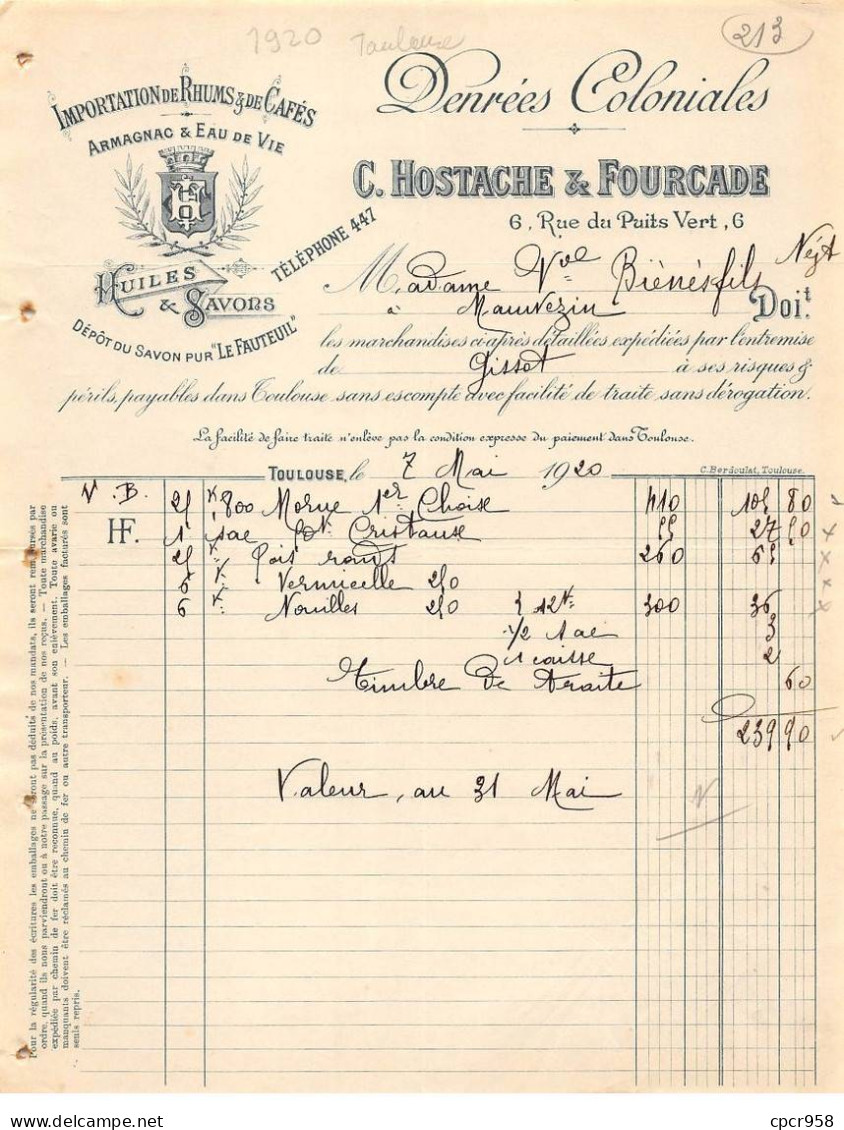 1920 Toulouse
213
IMPORTATION DE RHUMS & DE CAFÉS
ARMAGNAC & EAU DE VIE
HUILES
& SAVONS
DÉPÔT DU SAVON PUR "LE FAUTEUIL"
TÉLÉPHONE 447
Denrées Coloniales
C. HOSTACHE & FOURCADE
6, Rue du Puits Vert, 6
Madame Vve Biénès fils Négt
à Mauvezin Doit
les marchandises ci-après détaillées, expédiées par l'entremise
de Gissot à ses risques &
périls, payables dans Toulouse sans escompte avec facilité de traite sans dérogation.
La facilité de faire traite n'enlève pas la condition expresse du paiement dans Toulouse.
TOULOUSE, le 7 Mai 1920
C. Berdoulat, Toulouse.
V.B. 25 K 800 Morue 1er Choise 410 105 80
HF. 1 sac Cristause 55 27 50
25 K Pois ronds 260 65
6 K Vermicelle 250
6 K Nouilles 250 } 12 K 300 36
1/2 sac 3
1 caisse 2
Timbre de traite 60
239 90
Valeur, au 31 Mai
Pour la régularité des écritures les emballages ne seront pas déduits de nos mandats, ils seront remboursés par
ordre, quand ils nous parviendront ou à notre passage sur la présentation de nos reçus. — Toute marchandise
expédiée par chemin de fer doit être reconnue, quand au poids, avant son enlèvement. Toute avarie ou
manquants doivent être réclamés au chemin de fer ou autre transporteur. — Les emballages facturés sont
seuls repris.
www.delcampe.net
cpcr958